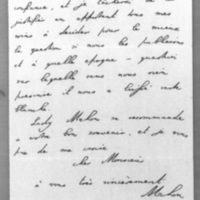 confiance, et je tâcherai de la
justifier en appellant tous mes
soins à décider pour le mieux
la question si nous les publierons
et à quelle époque – question
sur laquelle nous nous
personnes il nous a laissé carte
blanche.
Lady Mahon se recommande
à votre bon souvenir, et je vous
prie de me croire
cher Monsieur
à vous très sincèrement
Mahon